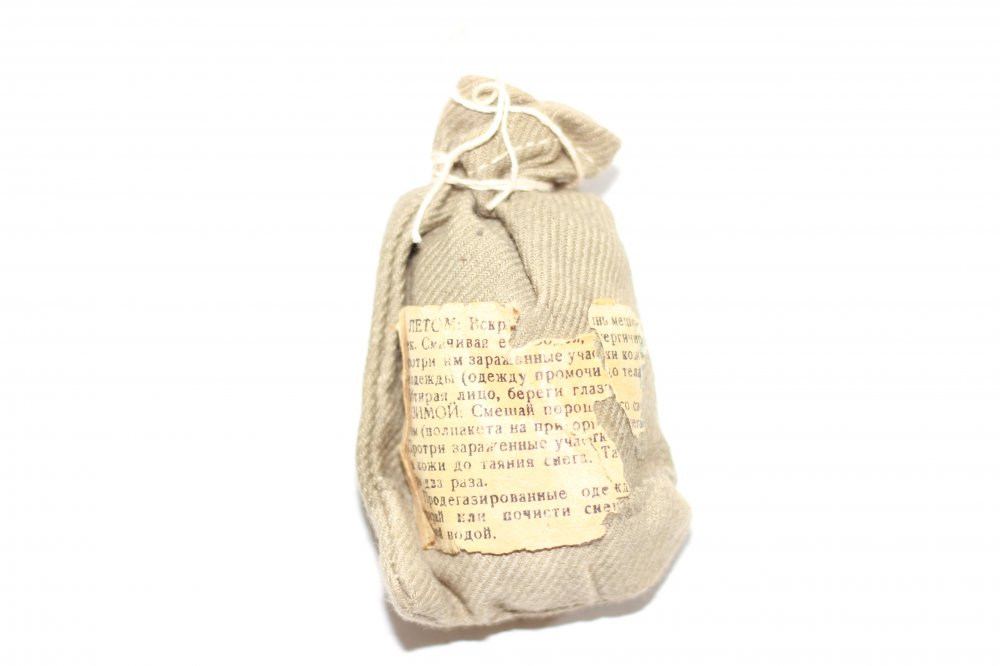 ЛЕТОМ: Вскр нь мешо-
к. Смачивая е водой, тергичн
отри им зараженные учас ки кож
одежды (одежду промочи до тела
тирая лицо, береги глаза
ЗИМОЙ: Смешай порош со с
м (полпакета на приго
ротри зараженные участк
кожи до таяния снега. Та
два раза.
Продегазированные одежд
ай или почисти снег
водой.